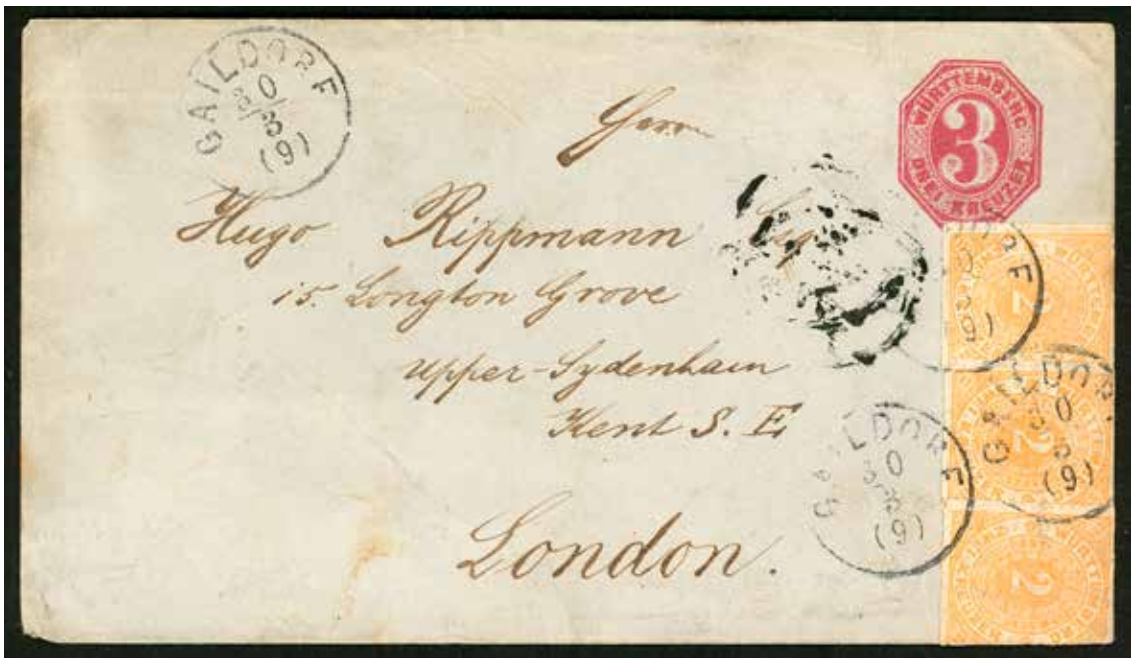 GAILDORF
30
3
(9)
WÜRTTEMBERG
3
DREI KREUZER
Herrn
Hugo Rippmann Esq
15. Longton Grove
Upper-Sydenham
Kent S. E
London.
2
GAILDORF
30
3
(9)
2
GAILDORF
30
3
(9)
2